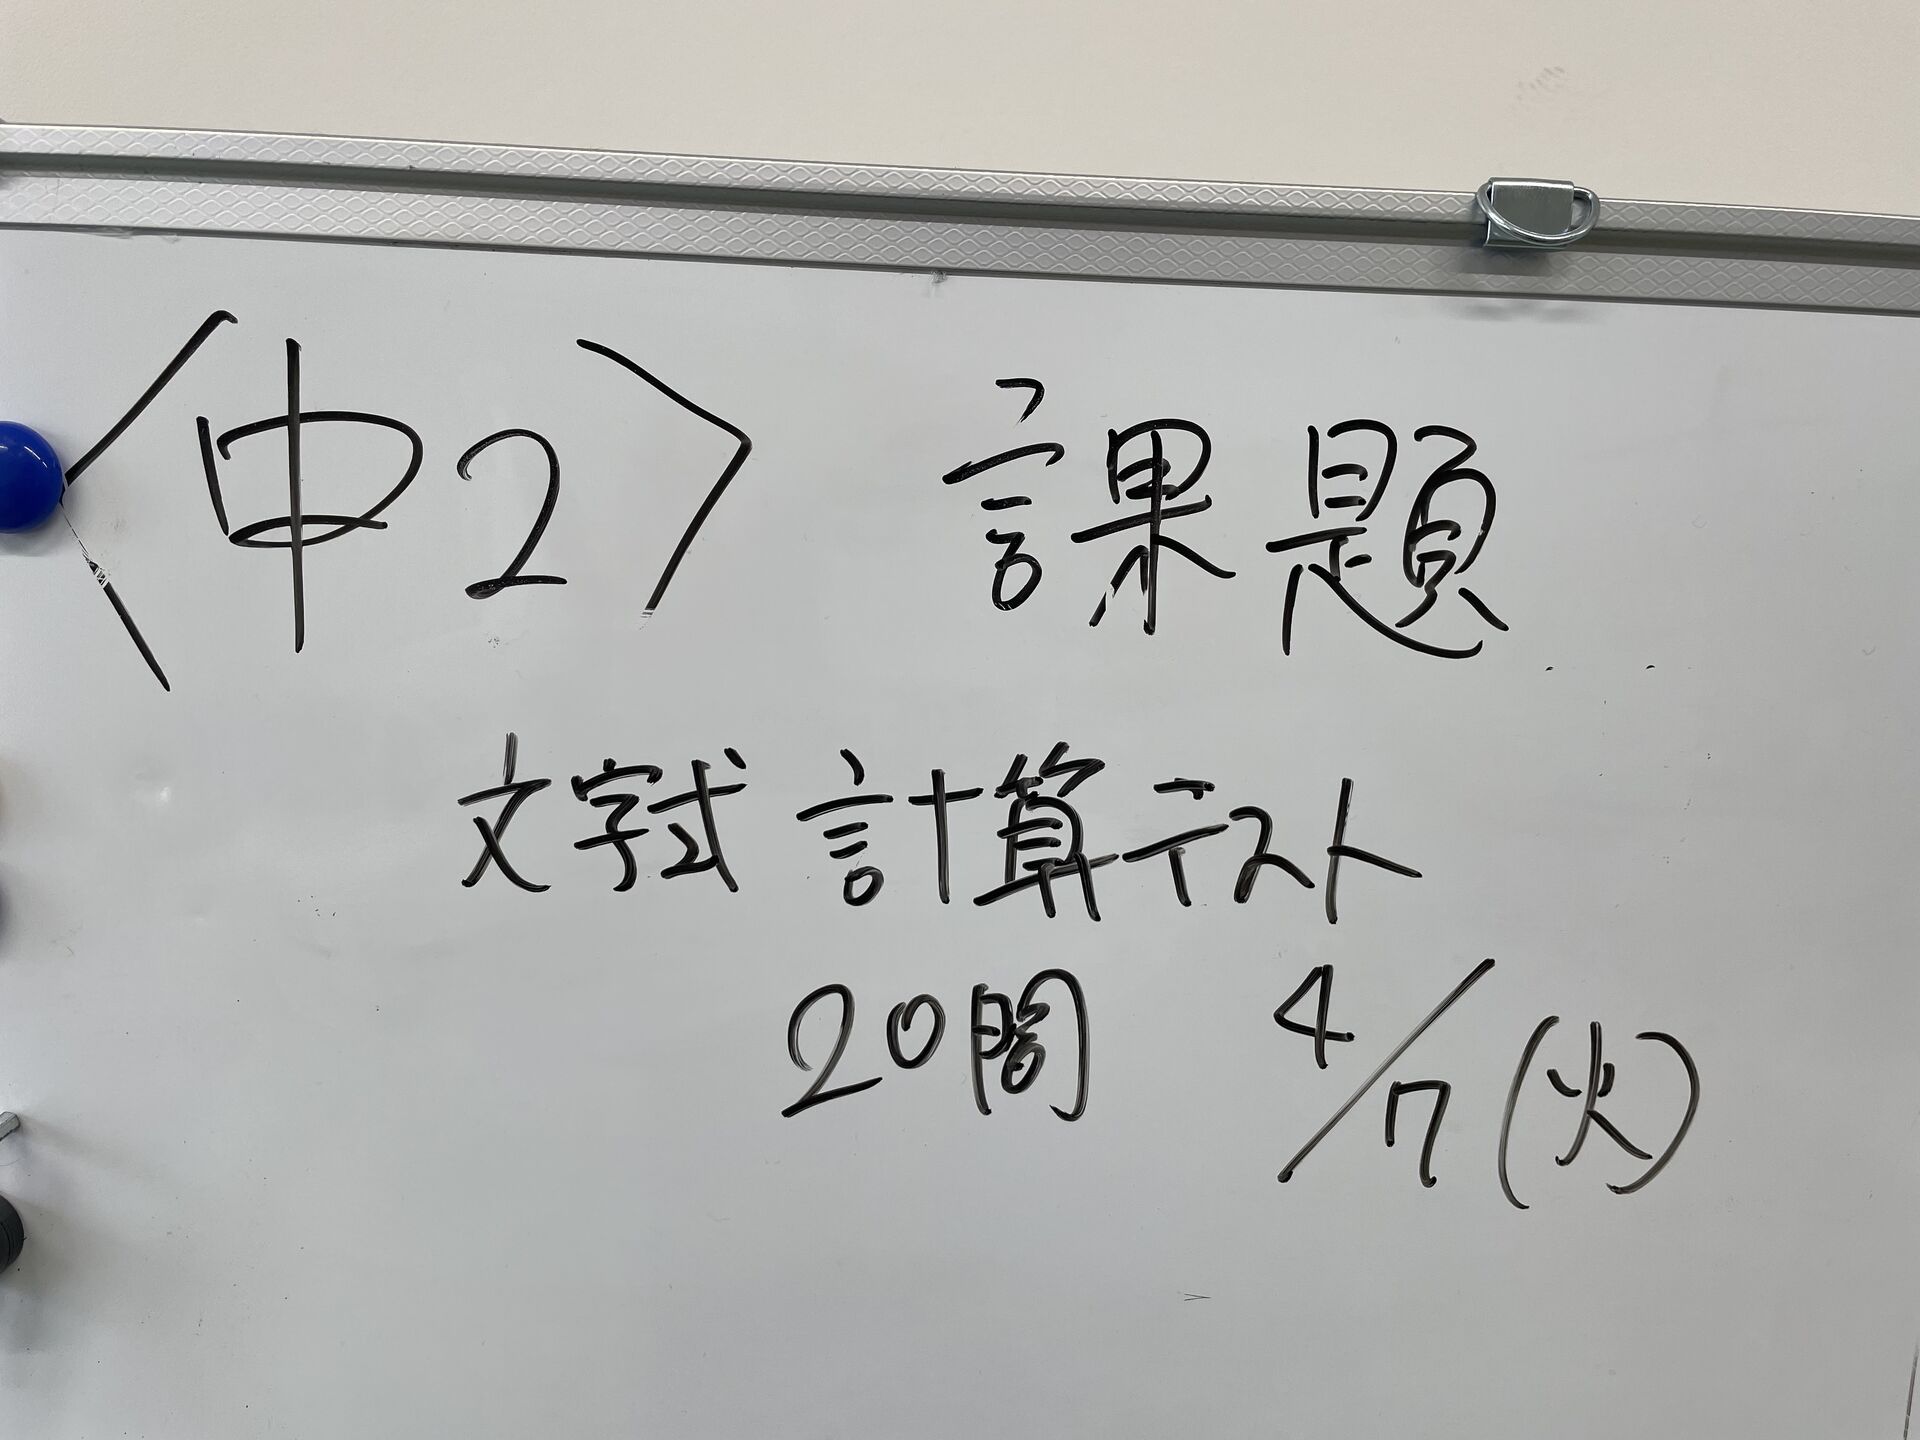 〈中2〉 課題
文字式 計算テスト
20問 4/7(火)